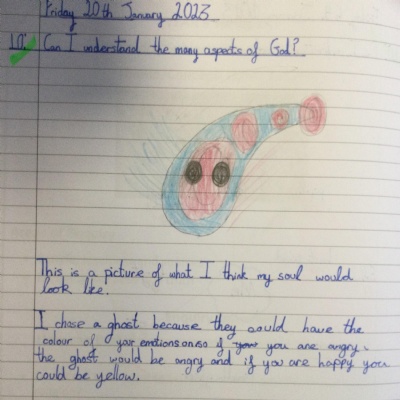 Friday 20th January 2023
LO: Can I understand the many aspects of God?
This is a picture of what I think my soul would
look like.
I chose a ghost because they could have the
colour of your emotions on so if you are angry
the ghost would be angry and if you are happy you
could be yellow.